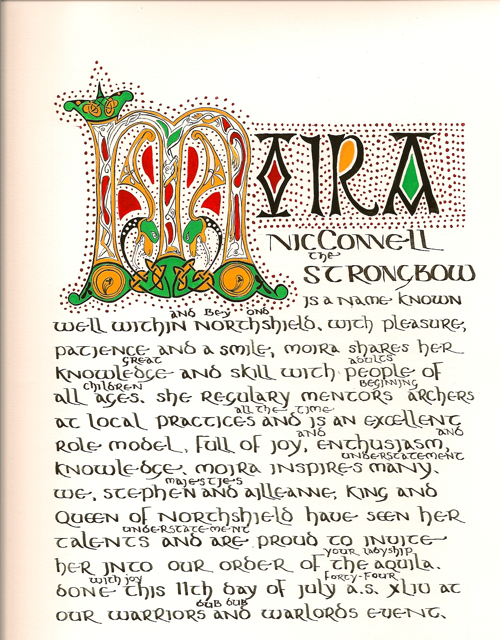 MOIRA
NicConnell
the
Strongbow
is a name known
and Bey ond
well within Northshield. With pleasure,
patience and a smile, Moira shares her
great adults
knowledge and skill with people of
children Beginning
all ages. She regulary mentors archers
all the time
at local practices and is an excellent
and and
role model, full of joy, enthusiasm,
understatement
knowledge. Moira inspires many.
majesties
We, Stephen and Ailleanne, King and
Queen of Northshield have seen her
understatement
talents and are proud to invite
your ladyship
her into our order of the aquila.
with joy forty-four
Done this 11th day of July A.S. XLIV at
dub dub
our warriors and warlords event.